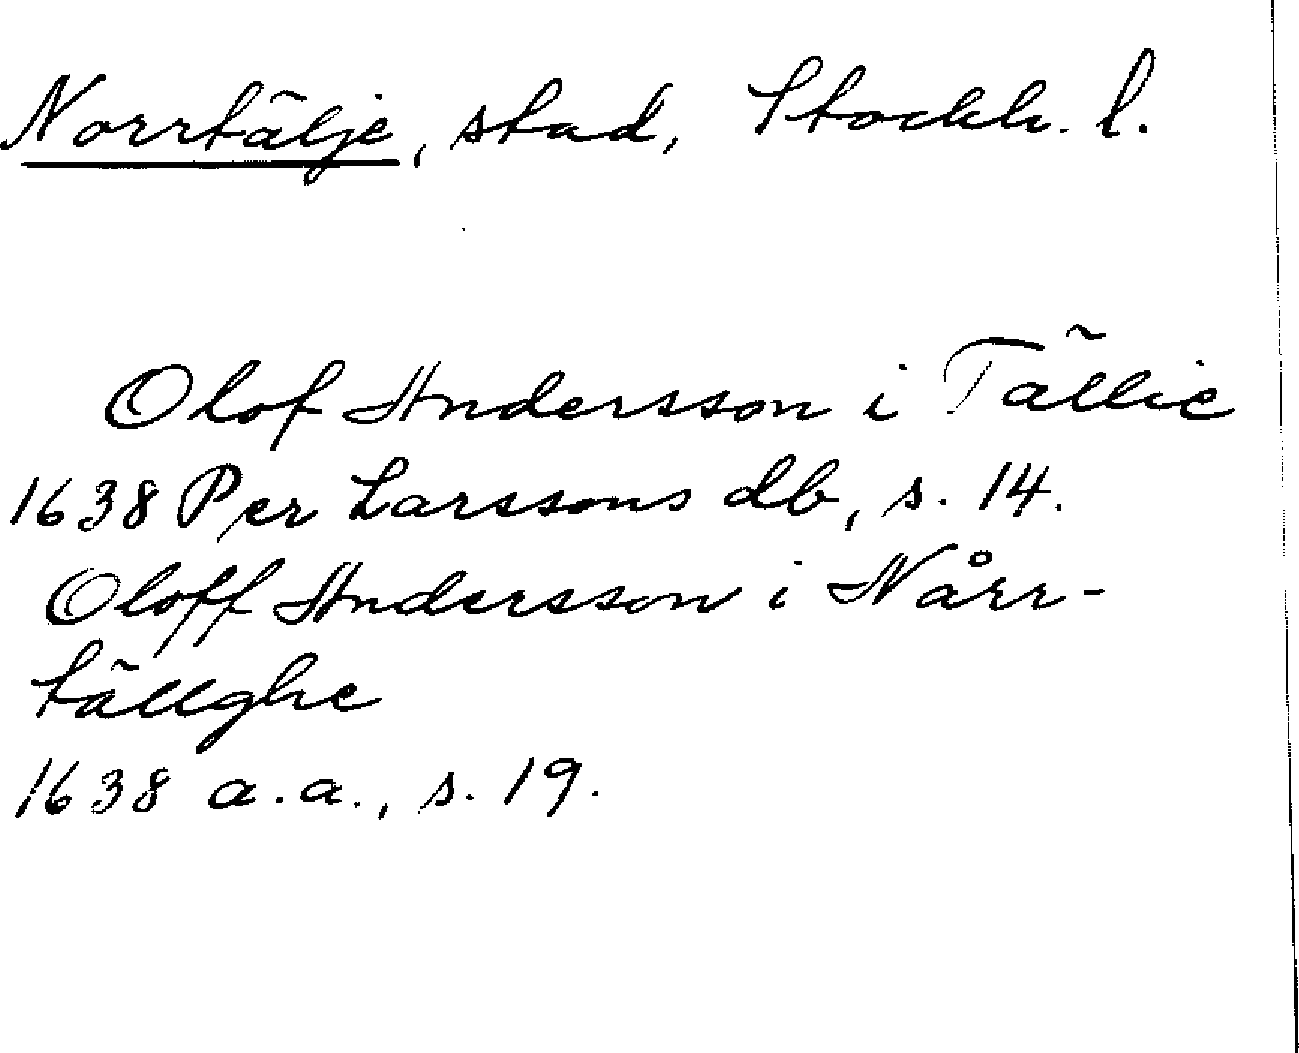 Norrtälje, stad, Stockh. l.
Olof Andersson i Tällie
1638 Per Larssons db, s. 14.
Oloff Andersson i Nårr-
tällghe
1638 a.a., s. 19.